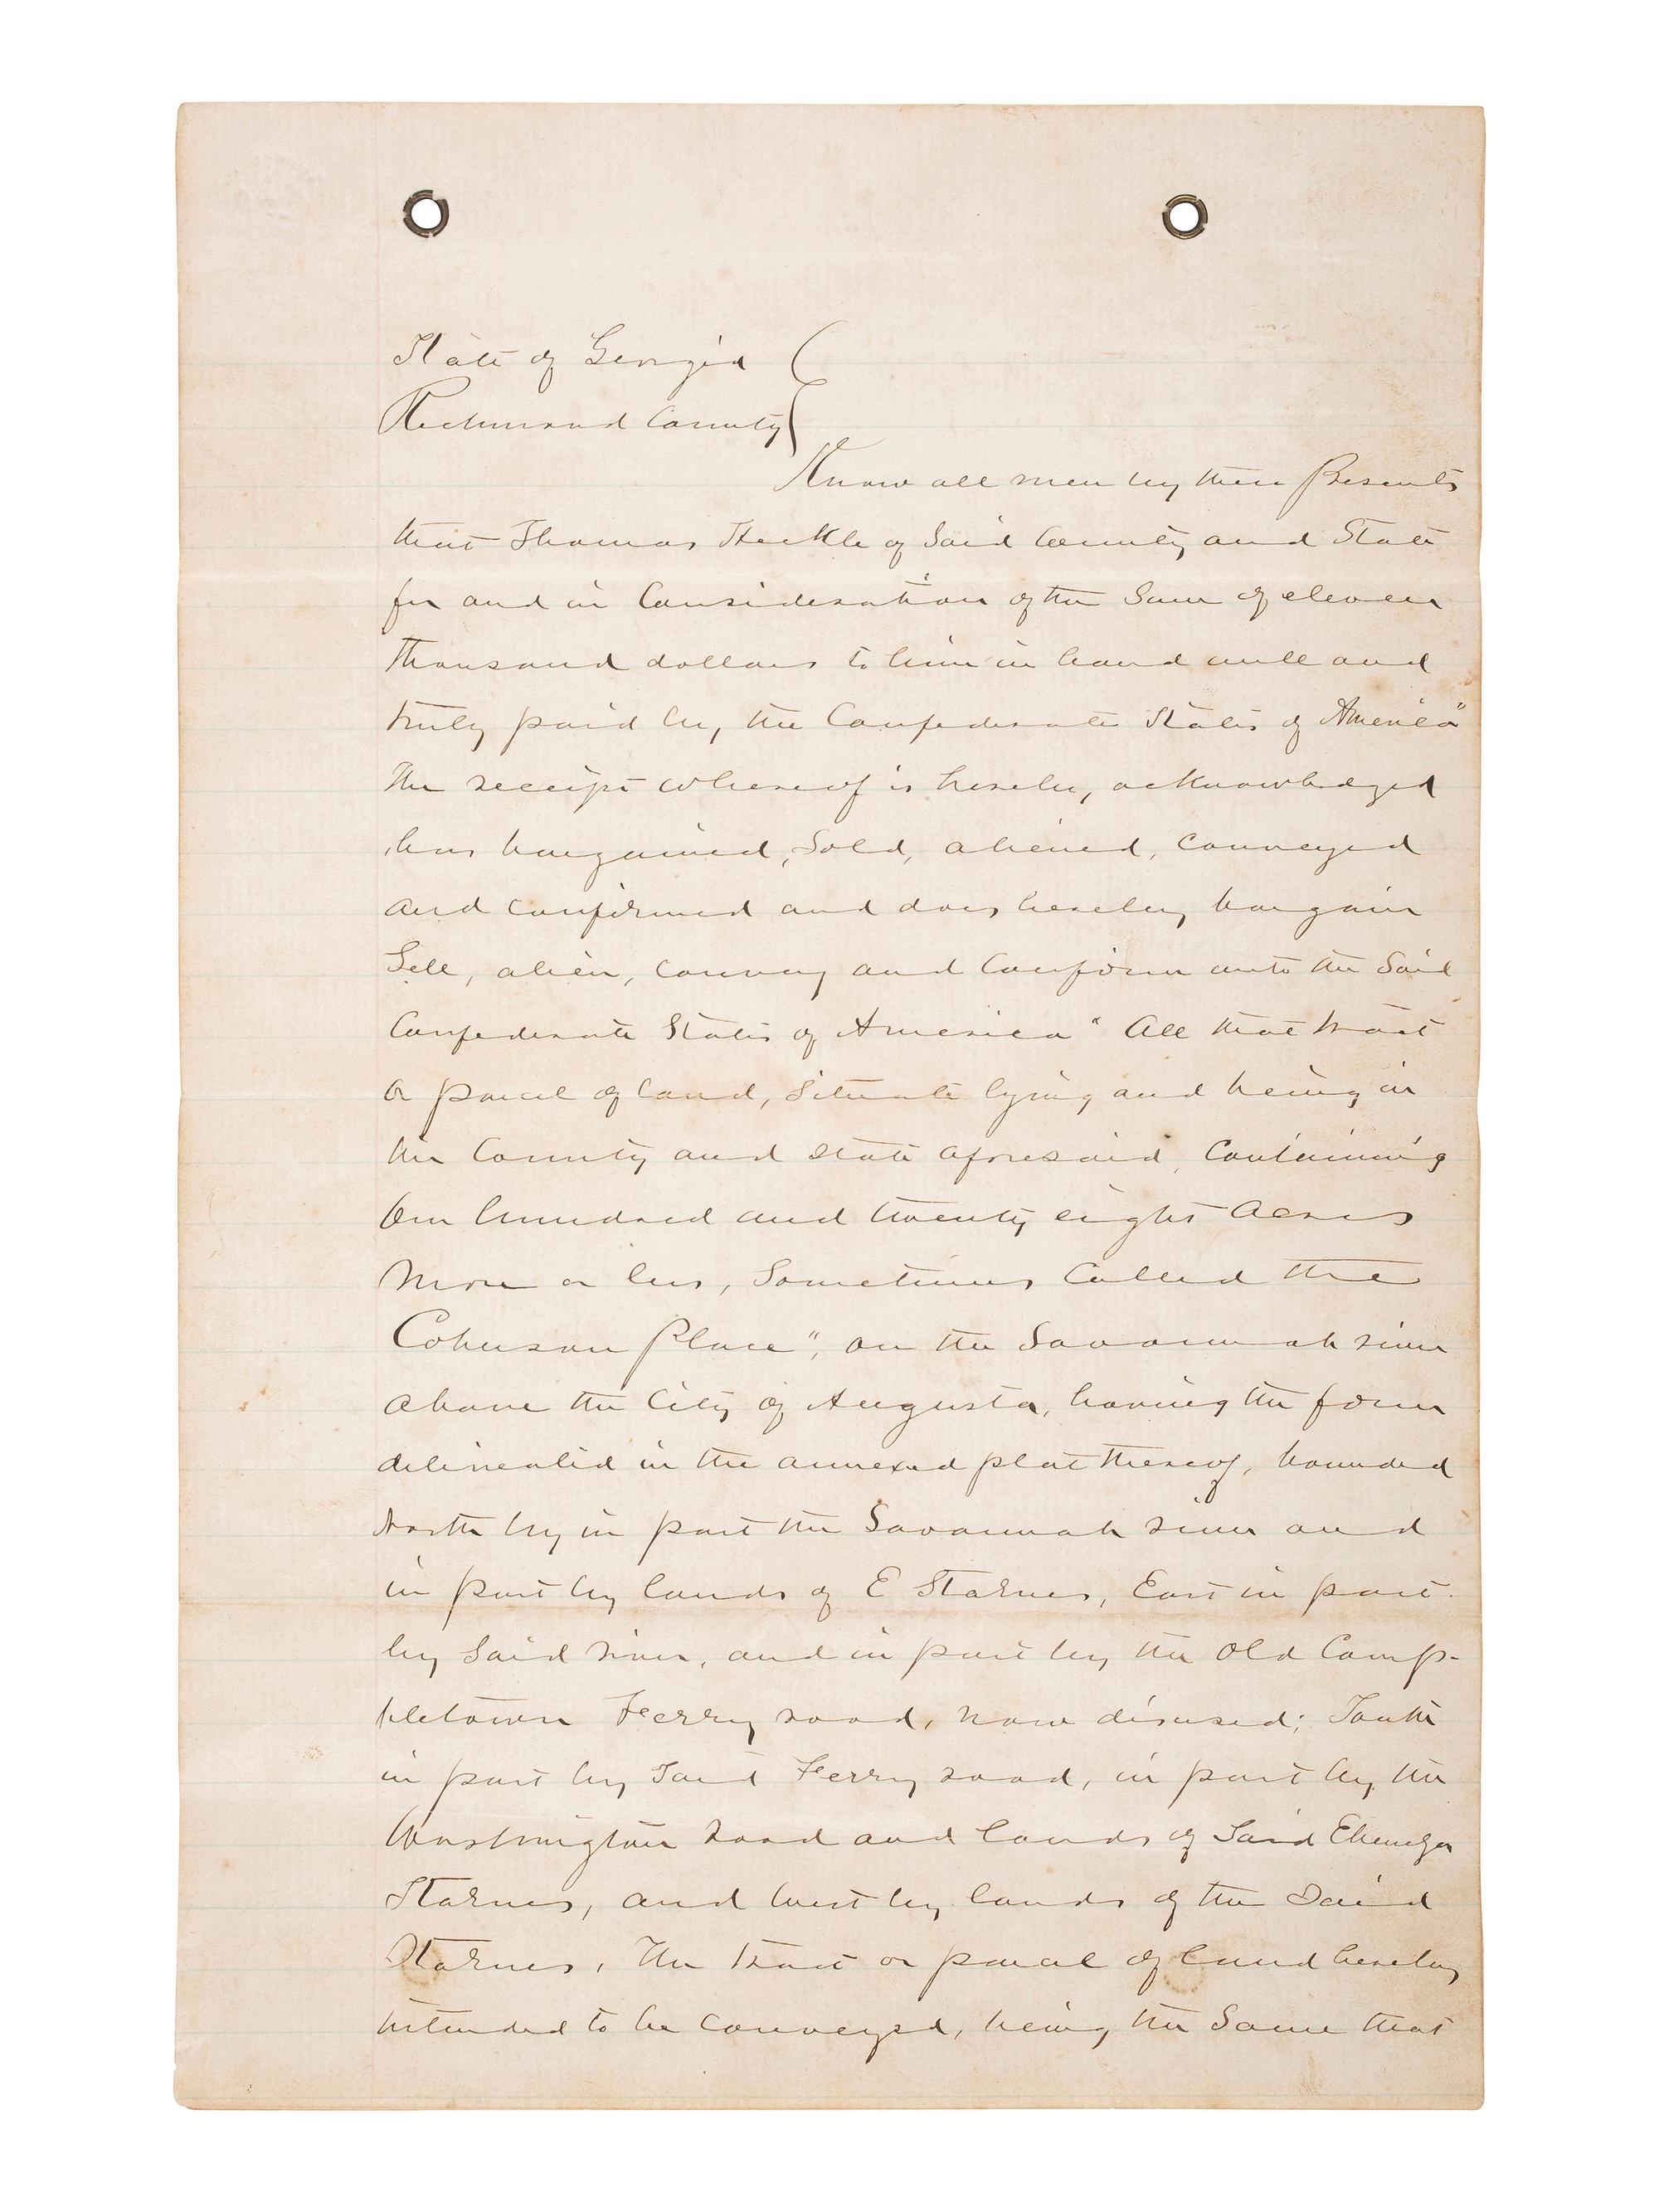 State of Georgia
Richmond County
Know all men by these Presents
that Thomas Heckle of Said County and State
for and in Consideration of the Sum of eleven
thousand dollars to him in hand well and
truly paid by, the Confederate States of America"
The receipt whereof is hereby, acknowledged
has bargained, Sold, aliened, conveyed
and confirmed and does hereby bargain
Sell, alien, convey and Confirm unto the Said
Confederate States of America" All that tract
or parcel of land, Situate lying and being in
the County and State aforesaid, Containing
One hundred and twenty eight Acres
More or less, Sometimes Called the
Place", on the Savannah river
above the City of Augusta, having the form
delineated in the annexed plat thereof, bounded
North by in part the Savannah river and
in part by lands of E Starnes, East in part
by Said river, and in part by the Old Camp-
bletown Ferry road, now disused; South
in part by Said Ferry road, in part by the
Washington road and lands of Said Ebenezer
Starnes, and West by lands of the Said
Starnes, The tract or parcel of land hereby
intended to be conveyed, being the Same that